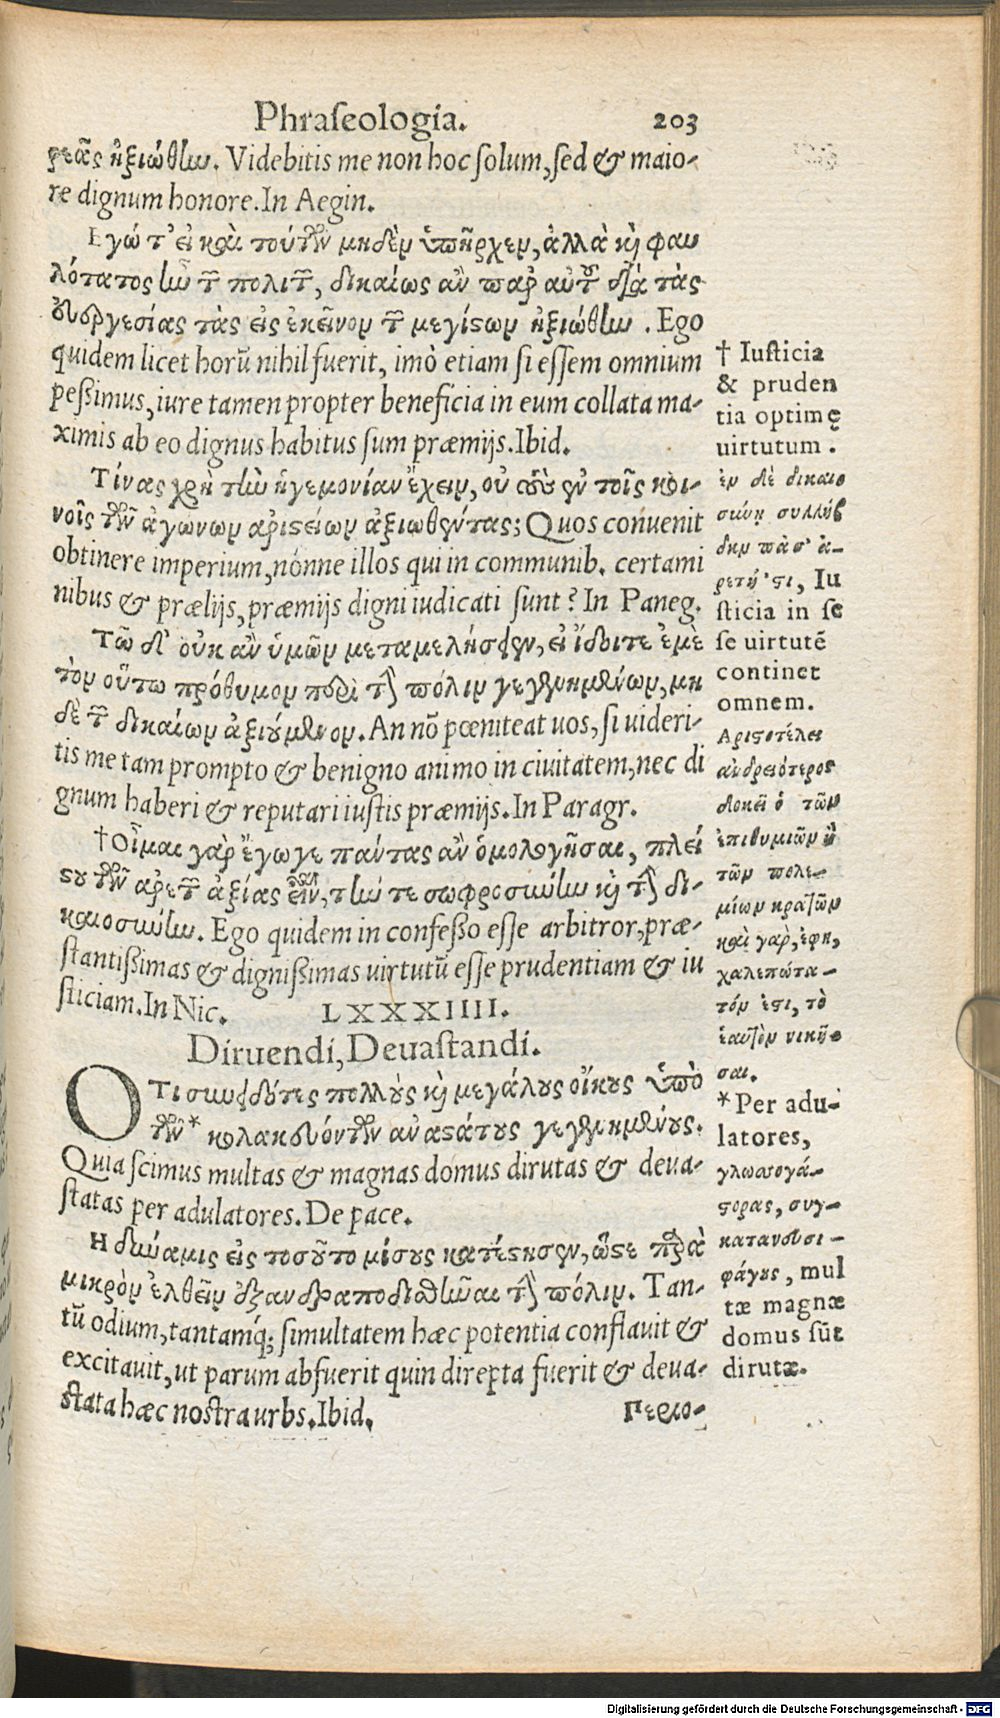 Phraſeologia. 203
ρεᾶς ἠξιώθην. Videbitis me non hoc ſolum, ſed & maio-
re dignum honore. In Aegin.
Εγώ τ' εἰ καὶ τούτων μηδὲν ὑπῆρχεν, ἀλλὰ καὶ φαυ
λότατος ὢν τῶν πολιτῶν, δικαίως ἂν παρ' αὐτοῦ διὰ τὰς
εὐεργεσίας τὰς εἰς ἐκεῖνον τῶν μεγίστων ἠξιώθην. Ego
quidem licet horũ nihil fuerit, imò etiam ſi eſſem omnium
peßimus, iure tamen propter beneficia in eum collata ma-
ximis ab eo dignus habitus ſum præmijs. Ibid.
Τίνας χρὴ τὴν ἡγεμονίαν ἔχειν, οὐ τοὺς ἐν τοῖς κοι-
νοῖς τῶν ἀγώνων ἀριστείων ἀξιωθέντας; Quos conuenit
obtinere imperium, nónne illos qui in communib. certami
nibus & prælijs, præmijs digni iudicati ſunt? In Paneg.
Τῷ δ' οὐκ ἂν ὑμῶν μεταμελήσειεν, εἰ ἴδοιτε ἐμὲ
τὸν οὕτω πρόθυμον περὶ τὴν πόλιν γεγενημένων, μη
δὲ τῶν δικαίων ἀξιούμενον. An nõ pœniteat uos, ſi uideri-
tis me tam prompto & benigno animo in ciuitatem, nec di
gnum haberi & reputari iuſtis præmijs. In Paragr.
†Οἶμαι γὰρ ἔγωγε πάντας ἂν ὁμολογῆσαι, πλεί
στου τῶν ἀρετῶν ἀξίας εἶναι, τήν τε σωφροσύνην καὶ τὴν δι-
καιοσύνην. Ego quidem in confeßo eſſe arbitror, præ-
ſtantißimas & digniſſimas uirtutũ eſſe prudentiam & iu
ſticiam. In Nic. LXXXIIII.
Diruendi, Deuaſtandi.
ΟΤι συνειδότες πολλοὺς καὶ μεγάλους οἴκους ὑπὸ
τῶν* κολακευόντων ἀναστάτους γεγενημένους.
Quia ſcimus multas & magnas domus dirutas & deua-
ſtatas per adulatores. De pace.
Η δύναμις εἰς τοσοῦτο μίσους κατέστησεν, ὥστε παρὰ
μικρὸν ἐλθεῖν ἐξανδραποδισθῆναι τὴν πόλιν. Tan-
tũ odium, tantamq́; ſimultatem hæc potentia conflauit &
excitauit, ut parum abfuerit quin direpta fuerit & deua-
ſtata hæc noſtra urbs. Ibid. Περιο-
† Iuſticia
& pruden
tia optimę
uirtutum.
ἐν δὲ δικαιο
σύνῃ συλλήβ
δην πᾶσ' ἀ-
ρετή 'στι, Iu
ſticia in ſe
ſe uirtutẽ
continet
omnem.
Αριστοτέλει
ἀνδρειότερος
δοκεῖ ὁ τῶν
ἐπιθυμιῶν ἢ
τῶν πολε-
μίων κρατῶν
καὶ γάρ, ἔφη,
χαλεπώτα-
τόν ἐστι, τὸ
ἑαυτὸν νικῆ-
σαι.
*Per adu-
latores,
γλωσσογά-
στορας, συγ-
κατανευσι-
φάγους, mul
tæ magnæ
domus ſũt
dirutæ.
Digitalisierung gefördert durch die Deutsche Forschungsgemeinschaft - DFG